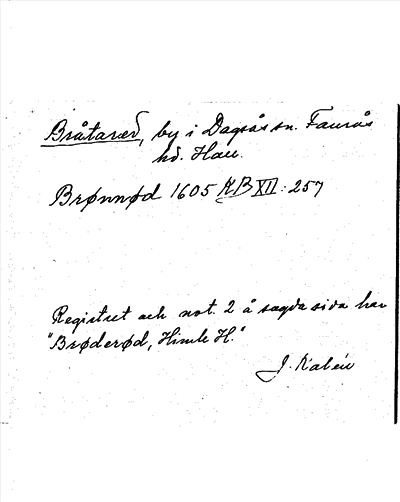 Bråtared, by i Dagsås sn. Faurås
hd. Hall.
Brønnød 1605 KB XII: 257
Registret och not. 2 å sagda sida har
"Brøderød, Himle H."
J. Kalén